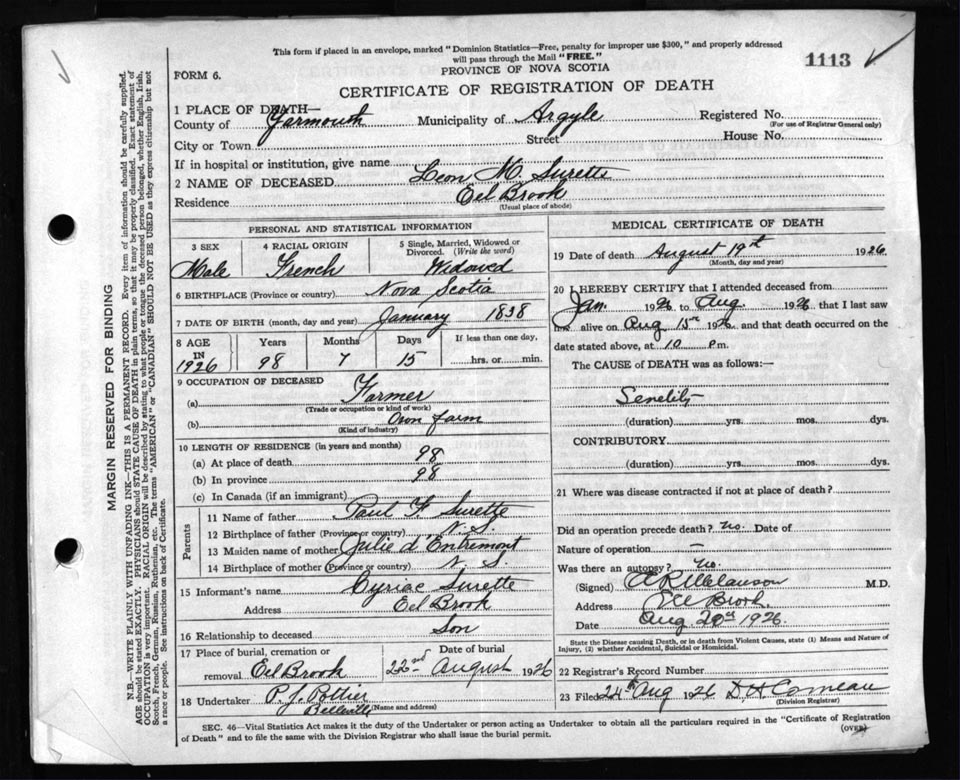 This form if placed in an envelope, marked "Dominion Statistics—Free, penalty for improper use $300," and properly addressed
will pass through the Mail "FREE."
1113
PROVINCE OF NOVA SCOTIA
FORM 6.
CERTIFICATE OF REGISTRATION OF DEATH
1 PLACE OF DEATH—
County of Yarmouth Municipality of Argyle Registered No.
(For use of Registrar General only)
City or Town Street House No.
If in hospital or institution, give name
2 NAME OF DECEASED Leon M. Surette
Residence Eel Brook
(Usual place of abode)
PERSONAL AND STATISTICAL INFORMATION
3 SEX 4 RACIAL ORIGIN 5 Single, Married, Widowed or
Divorced. (Write the word)
Male French Widowed
6 BIRTHPLACE (Province or country) Nova Scotia
7 DATE OF BIRTH (month, day and year) January 1838
8 AGE Years Months Days If less than one day,
IN
1926 98 7 15 hrs. or min.
9 OCCUPATION OF DECEASED
(a) Farmer
(Trade or occupation or kind of work)
(b) Own farm
(Kind of industry)
10 LENGTH OF RESIDENCE (in years and months)
(a) At place of death 98
(b) In province 98
(c) In Canada (if an immigrant)
Parents
11 Name of father Paul F Surette
12 Birthplace of father (Province or country) N. S.
13 Maiden name of mother Julie d'Entremont
14 Birthplace of mother (Province or country) N. S.
15 Informant's name Cyriac Surette
Address Eel Brook
16 Relationship to deceased Son
17 Place of burial, cremation or Date of burial
removal Eel Brook 22nd August 1926
18 Undertaker P. J. Pottier
Belleville (Name and address)
MEDICAL CERTIFICATE OF DEATH
19 Date of death August 19th 1926
(Month, day and year)
20 I HEREBY CERTIFY that I attended deceased from
Jan. 1926 to Aug 1926, that I last saw
alive on Aug 15th 1926, and that death occurred on
date stated above, at 10 P.m.
The CAUSE of DEATH was as follows:—
Senelity
(duration) yrs. mos. dys.
CONTRIBUTORY
(duration) yrs. mos. dys.
21 Where was disease contracted if not at place of death?
Did an operation precede death? No. Date of
Nature of operation —
Was there an autopsy? No.
(Signed) M.D.
Address Eel Brook
Date Aug 20th 1926.
State the Disease causing Death, or in death from Violent Causes, state (1) Means and Nature of
Injury, (2) whether Accidental, Suicidal or Homicidal.
22 Registrar's Record Number
23 Filed 24th Aug 1926 D H Comeau
(Division Registrar)
SEC. 46—Vital Statistics Act makes it duty of the Undertaker or person acting as Undertaker to obtain all the particulars required in the "Certificate of Registration
of Death" and to file the same with the Division Registrar who shall issue the burial permit.
(OVER)
MARGIN RESERVED FOR BINDING
N.B.—WRITE PLAINLY WITH UNFADING INK—THIS IS A PERMANENT RECORD. Every item of information should be carefully supplied.
AGE should be stated EXACTLY. PHYSICIANS should STATE CAUSE OF DEATH in plain terms, so that it may be properly classified. Exact statement of
OCCUPATION is very important. RACIAL ORIGIN will be described by stating to what people or tongue the deceased person belonged, whether English, Irish,
Scotch, French, German, Russian, Ruthenian, etc. The terms "AMERICAN" or "CANADIAN" SHOULD NOT BE USED as they express citizenship but not
a race or people. See instructions on back of Certificate.